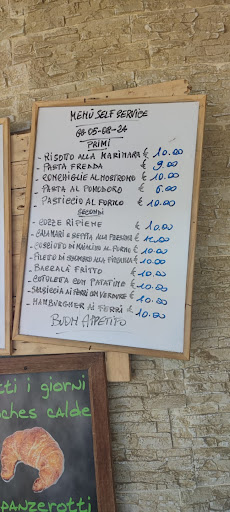 MENÙ SELF SERVICE
05-08-24
PRIMI
- RISOTTO ALLA MARINARA € 10.00
- PASTA FREDDA € 9.00
- CONCHIGLIE € 10.00
- PASTA AL POMODORO € 6.00
- PASTICCIO AL FORNO € 10.00
SECONDI
- COZZE RIPIENE € 10.00
- CALAMARI E SEPPIA ALLA €
- COSCIOTTO DI MAIALINO AL FORNO € 10.00
- FILETO DI ALLA € 10.00
- BACCALÀ FRITTO € 10.00
- COTOLETTA CON PATATINE € 10.00
- SALSICCIA AI FERRI CON VERDURE € 10.00
- HAMBURGHER AI FERRI € 10.00
BUON APPETITO
tti i giorni
ches calde
panzerotti